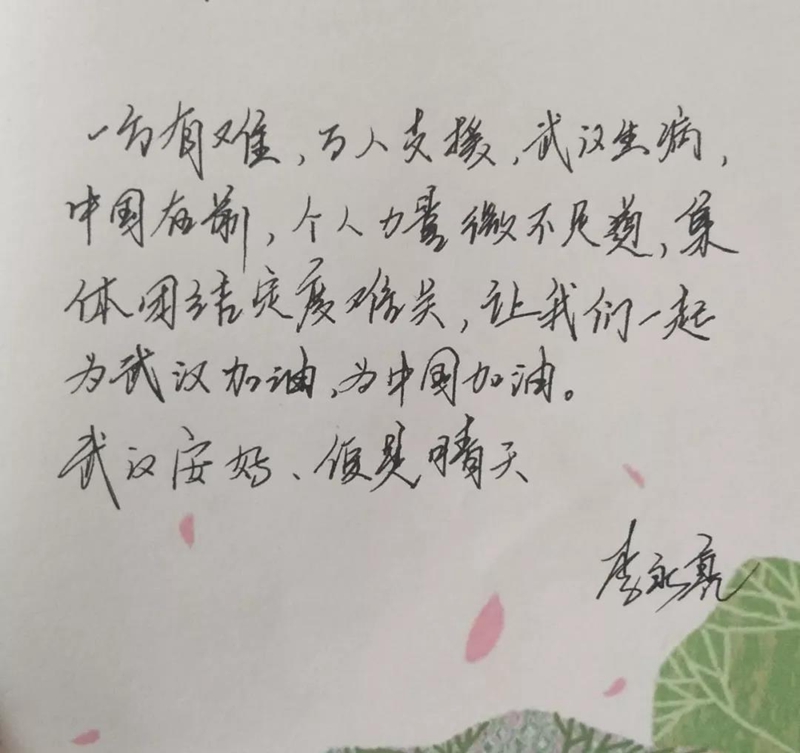 一方有难，万人支援，武汉生病，
中国在前，个人力量微不足道，集
体团结定度难关，让我们一起
为武汉加油，为中国加油。
武汉安好、便是晴天
李永亮